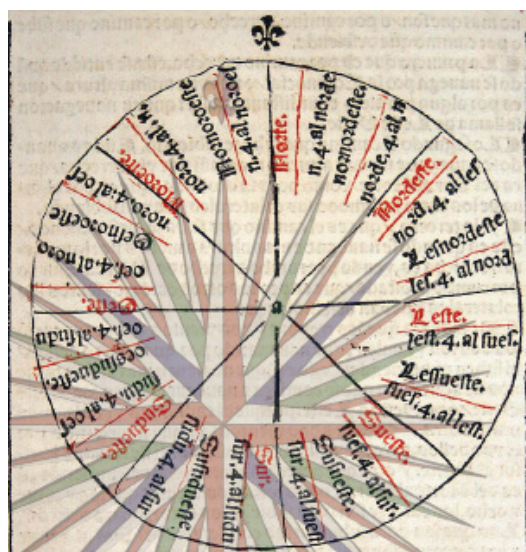 Norte.
n. 4. al norde.
nornordeste.
norde. 4. al. n
Nordeste.
nord. 4. al les
Lesnordeste
les. 4. al nord
Leste.
lest. 4. al sues.
Lessueste.
sues. 4. al lest.
Sueste.
sues. 4. al sur.
Susueste.
sur. 4. al suest
Sur.
sur. 4. al sudu
Susudueste.
sudu. 4. al sur
Sudueste.
sudu. 4. al oes
oessudueste.
oes. 4. al sudu
Oeste.
oes. 4. al noro
Oesnoroeste
noro. 4. al oes
Noroeste.
noro. 4. al. n.
Nornoroeste
n. 4. al noroes
a